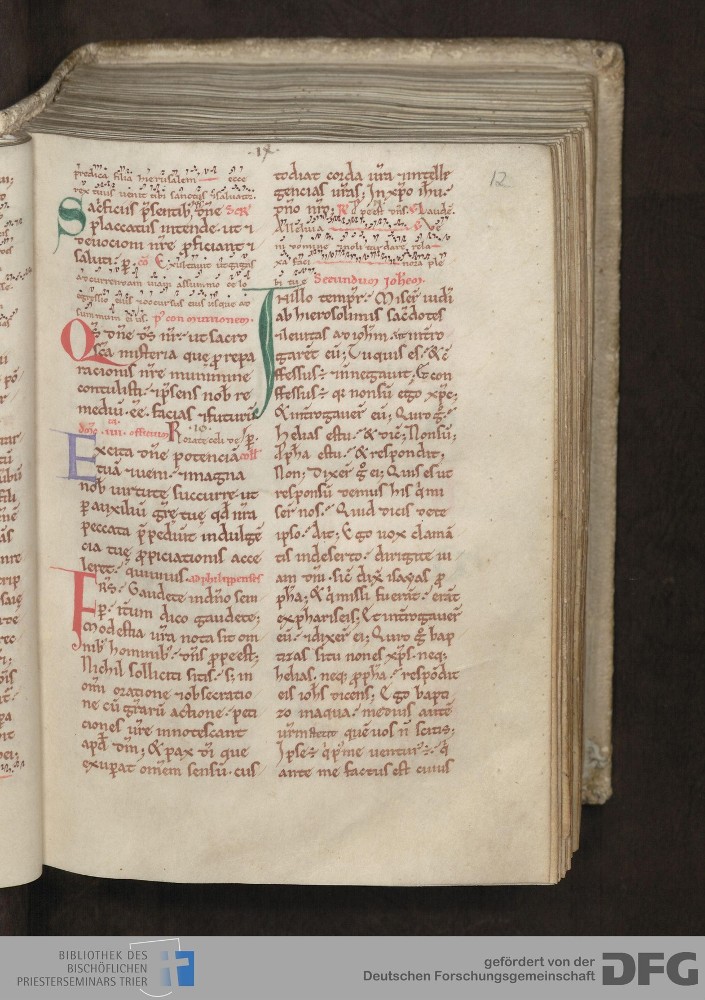 ·ix·
12
predica filia hierusalem ecce
rex tuus venit tibi sanctus & saluator.
Sacrificiis p̄sentib; dn̄e
placatus intende · ut &
deuocioni nr̄e ꝓficiant &
saluti · ꝑ. cō Exultauit ut gigas
ad currendam uiam a summo celo
egressio eius & occursus eius usque ad
summum eius. p̄ communionem.
Qs̄ dn̄e ds̄ nr̄ · ut sacro
sc̄a misteria que ꝓ repa
racionis nr̄e munimine
contulisti · & p̄sens nob̄ re
mediū · eē · facias & futurū
Rorate celi de
Excita dn̄e potenciā
tuā & ueni · & magna
nob̄ uirtute succurre · ut
ꝑ auxiliū gr̄e tuę qd̄ nr̄a
peccata p̄pediunt indulgē
cia tuę ꝓpiciationis acce
leret · qui uiuis. ad philippenses
Frs̄ · Gaudete in dn̄o sem
ꝑ · itum dico gaudete;
Modestia ur̄a nota sit om
nib; hominib; dn̄s ꝓpe est;
Nichil solliciti sitis · s; in
om̄i oratione & obsecratio
ne cū gr̄arū actione · peti
ciones ur̄e innotescant
apd̄ dm̄; & pax dī que
exuꝑat om̄em sensū · cus
todiat corda ur̄a & intelle
gencias ur̄as; In xp̄o ih̄u ·
dn̄o nr̄o;
Alleluia Ve
ni domine & noli tardare rela
xa faci nora ple
bi tuę Secundum ioh̄em.
In illo tempr̄ · Miser̄ iudi
ab hierosolimis sacdotes
& leuitas ad ioh̄m · ut intro
garēt eū; Tu quis es · & c̄
fessus ÷ & n̄ negauit; Et con
fessus ÷ qr̄ non sū ego xp̄c;
& introgauer̄ eū; Quid g̊ ·
helias es tu · & dic̄; Non sū;
ꝓph̄a es tu · & respondit;
Non; Dixer̄ g̊ ei; Quis es ut
responsū demus his q̇ mi
ser̄ nos · Quid dicis de te
ipso · Ait; Ego uox clamā
tis in deserto · dirigite ui
am dn̄i · sic̄ dix̄ isayas ꝓ
ph̄a; & q̇ missi fuerāt · erāt
ex phariseis; Et introgauer̄
eū · & dixer̄ ei; Quid g̊ bap
tizas si tu non es xp̄s · neq;
helias · neq; ꝓph̄a · respōdit
eis ioh̄s dicens; Ego bapti
zo in aqua · medius autē
ur̄m stetit quē uos n̄ scitis;
Ipse ÷ q̇ p̄ me uentur̄ ÷ · q̇
ante me factus est cuius
BIBLIOTHEK DES
BISCHÖFLICHEN
PRIESTERSEMINARS TRIER
gefördert von der
Deutschen Forschungsgemeinschaft
DFG